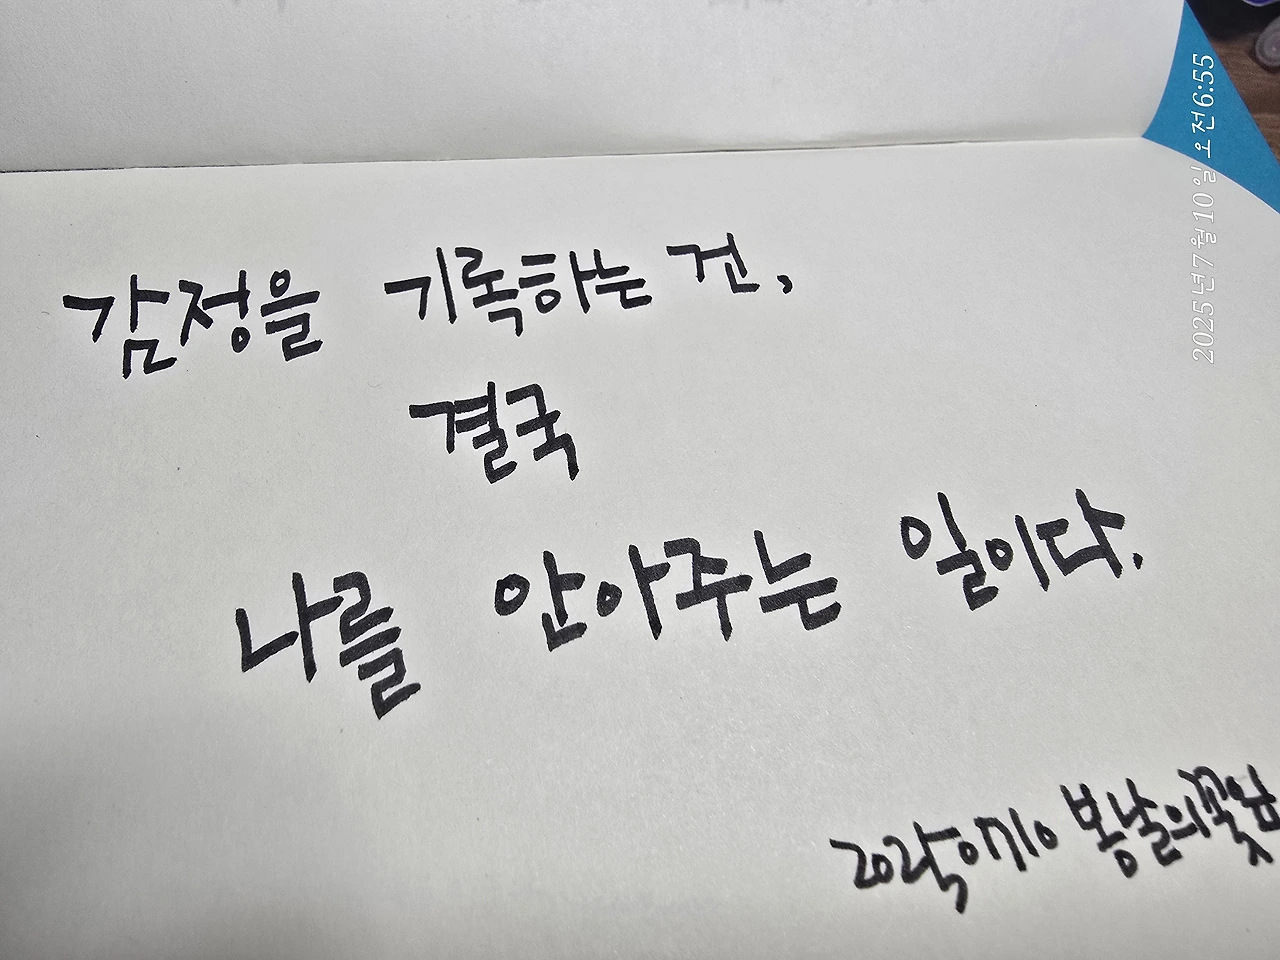 감정을 기록하는 건,
결국
나를 안아주는 일이다.
20250710 봄날의
2025년 7월 10일 오전 6:55